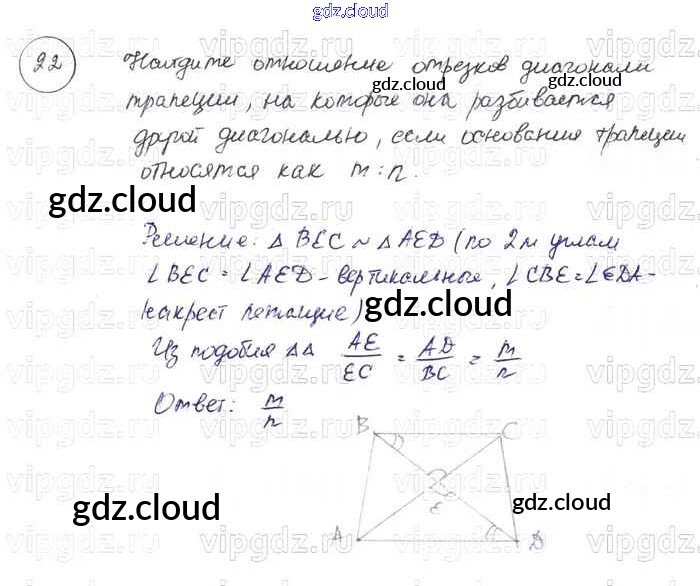 gdz.cloud
22 Найдите отношение отрезков диагонали
gdz.cloud
трапеции, на которые она разбивается
другой диагональю, если основания трапеции
относятся как m:n.
gdz.cloud
Решение: △ BEC ~ △ AED (по 2м углам
∠BEC = ∠AED - вертикальные, ∠CBE = ∠EDA -
накрест лежащие)
gdz.cloud
Из подобия △△ AE/EC = AD/BC = m/n
gdz.cloud
Ответ: m/n
B C
E
gdz.cloud
gdz.cloud
A D